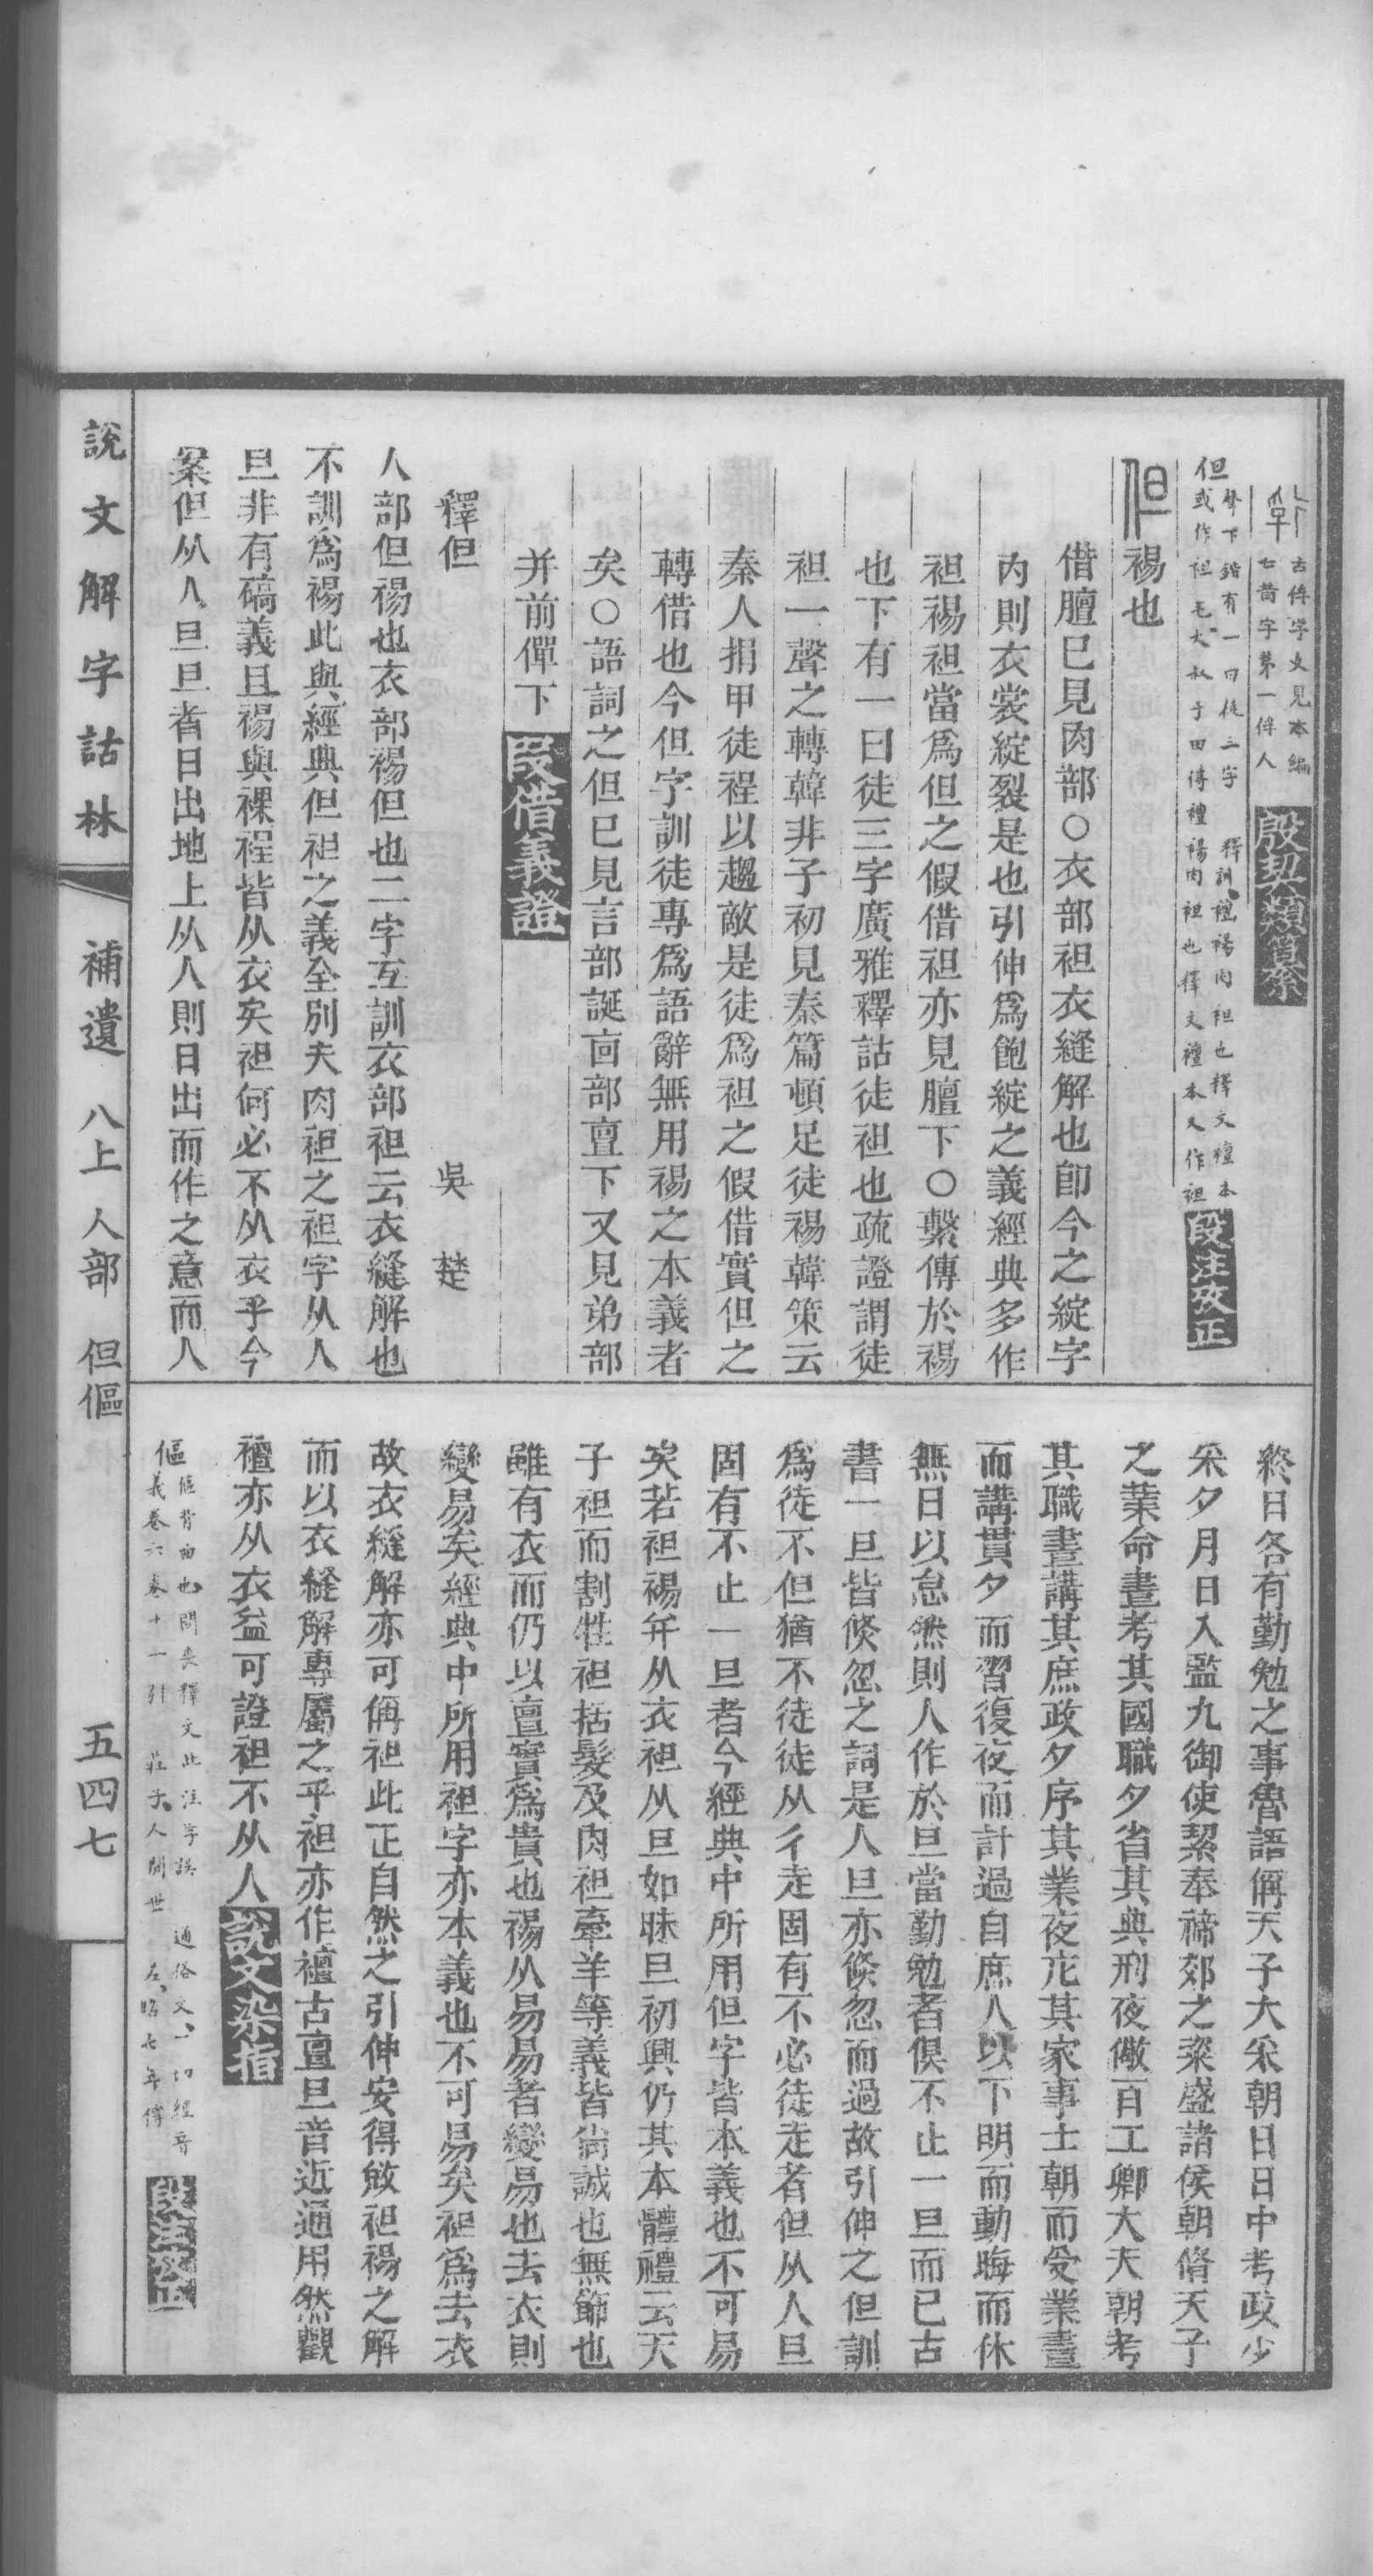 古俾字文見本編
七萻字第一俾人
殷契類纂
但
聲下鍇有一曰徒三字　釋訓襢裼肉袒也釋文襢本
或作袒毛大叔于田傳襢裼肉袒也釋文襢本又作袒
段注攷正
但裼也
借膻已見肉部○衣部袒衣縫解也卽今之綻字
內則衣裳綻裂是也引伸爲飽綻之義經典多作
袒裼袒當爲但之假借袒亦見膻下○繫傳於裼
也下有一曰徒三字廣雅釋詁徒袒也疏證謂徒
袒一聲之轉韓非子初見秦篇頓足徒裼韓策云
秦人捐甲徒裎以趨敵是徒爲袒之假借實但之
轉借也今但字訓徒專爲語辭無用裼之本義者
矣○語詞之但已見言部誕亩部亶下又見弟部
并前僤下
叚借義證
釋但　吳楚
人部但裼也衣部裼但也二字互訓衣部袒云衣縫解也
不訓爲裼此與經典但袒之義全別夫肉袒之袒字从人
旦非有碻義且裼與裸裎皆从衣矣袒何必不从衣乎今
案但从人旦旦者日出地上从人則日出而作之意而人
終日各有勤勉之事魯語偁天子大采朝日日中考政少
采夕月日入監九御使潔奉禘郊之粢盛諸侯朝脩天子
之業命晝考其國職夕省其典刑夜儆百工卿大夫朝考
其職晝講其庶政夕序其業夜庀其家事士朝而受業晝
而講貫夕而習復夜而計過自庶人以下明而動晦而休
無日以怠然則人作於旦當勤勉者俱不止一旦而已古
書一旦皆倏忽之詞是人旦亦倏忽而過故引伸之但訓
爲徒不但猶不徒徒从彳走固有不必徒走者但从人旦
固有不止一旦者今經典中所用但字皆本義也不可易
矣若袒裼并从衣袒从旦如昧旦初興仍其本體禮云天
子袒而割牲袒括髮及肉袒牽羊等義皆尙誠也無飾也
雖有衣而仍以亶實爲貴也裼从易易者變易也去衣則
變易矣經典中所用袒字亦本義也不可易矣袒爲去衣
故衣縫解亦可偁袒此正自然之引伸安得敓袒裼之解
而以衣縫解專屬之乎袒亦作襢古亶旦音近通用然觀
襢亦从衣益可證袒不从人
說文染指
傴
傴背曲也問喪釋文此注字誤　通俗文一切經音
義卷六卷十一引　莊子人閒世　左昭七年傳
段注攷正
說文解字詁林　補遺　八上　人部　但傴　五四七